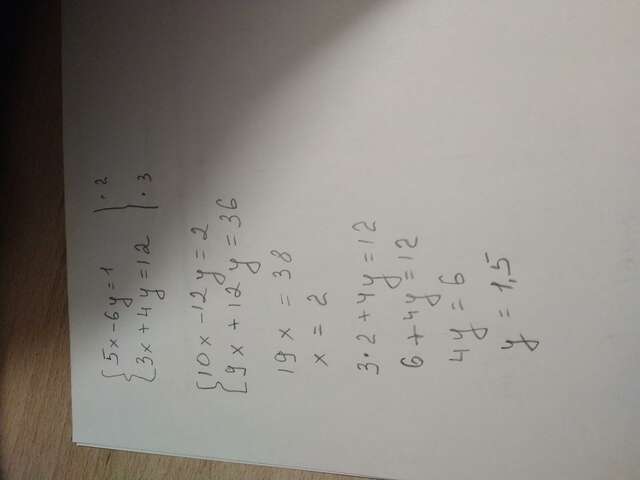 {5x-6y=1 }·2
{3x+4y=12 }·3
{10x-12y=2
{9x+12y=36
19x=38
x=2
3·2+4y=12
6+4y=12
4y=6
y=1,5